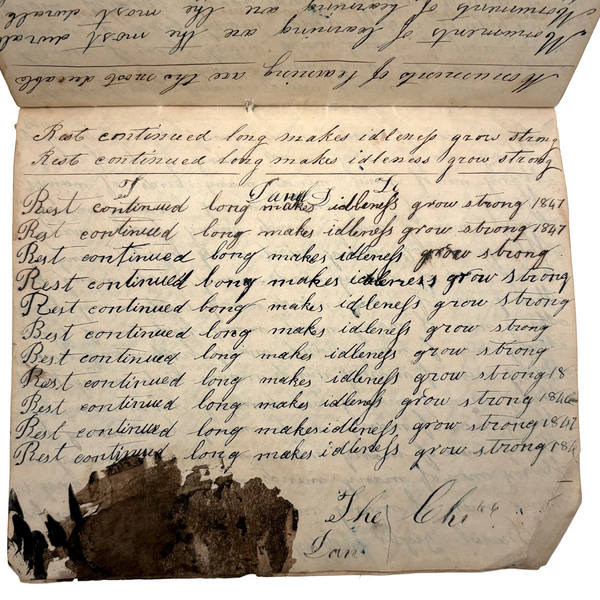 Monuments of learning are the most durable
Monuments of learning are the most durable
Monuments of learning are the most durable
Rest continued long makes idleneſs grow strong
Rest continued long makes idleness grow strong
T Land T
Rest continued long makes idleneſs grow strong 1847
Rest continued long makes idleneſs grow strong 1847
Rest continued long makes idleneſs grow strong
Rest continued long makes idleness grow strong
Rest continued long makes idleneſs grow strong
Best continued long makes idleneſs grow strong
Best continued long makes idleneſs grow strong
Rest continued long makes idleneſs grow strong 18
Rest continued long makes idleneſs grow strong 1846
Rest continued long makes idleneſs grow strong 1847
Rest continued long makes idleneſs grow strong 184
The Chi
Lan